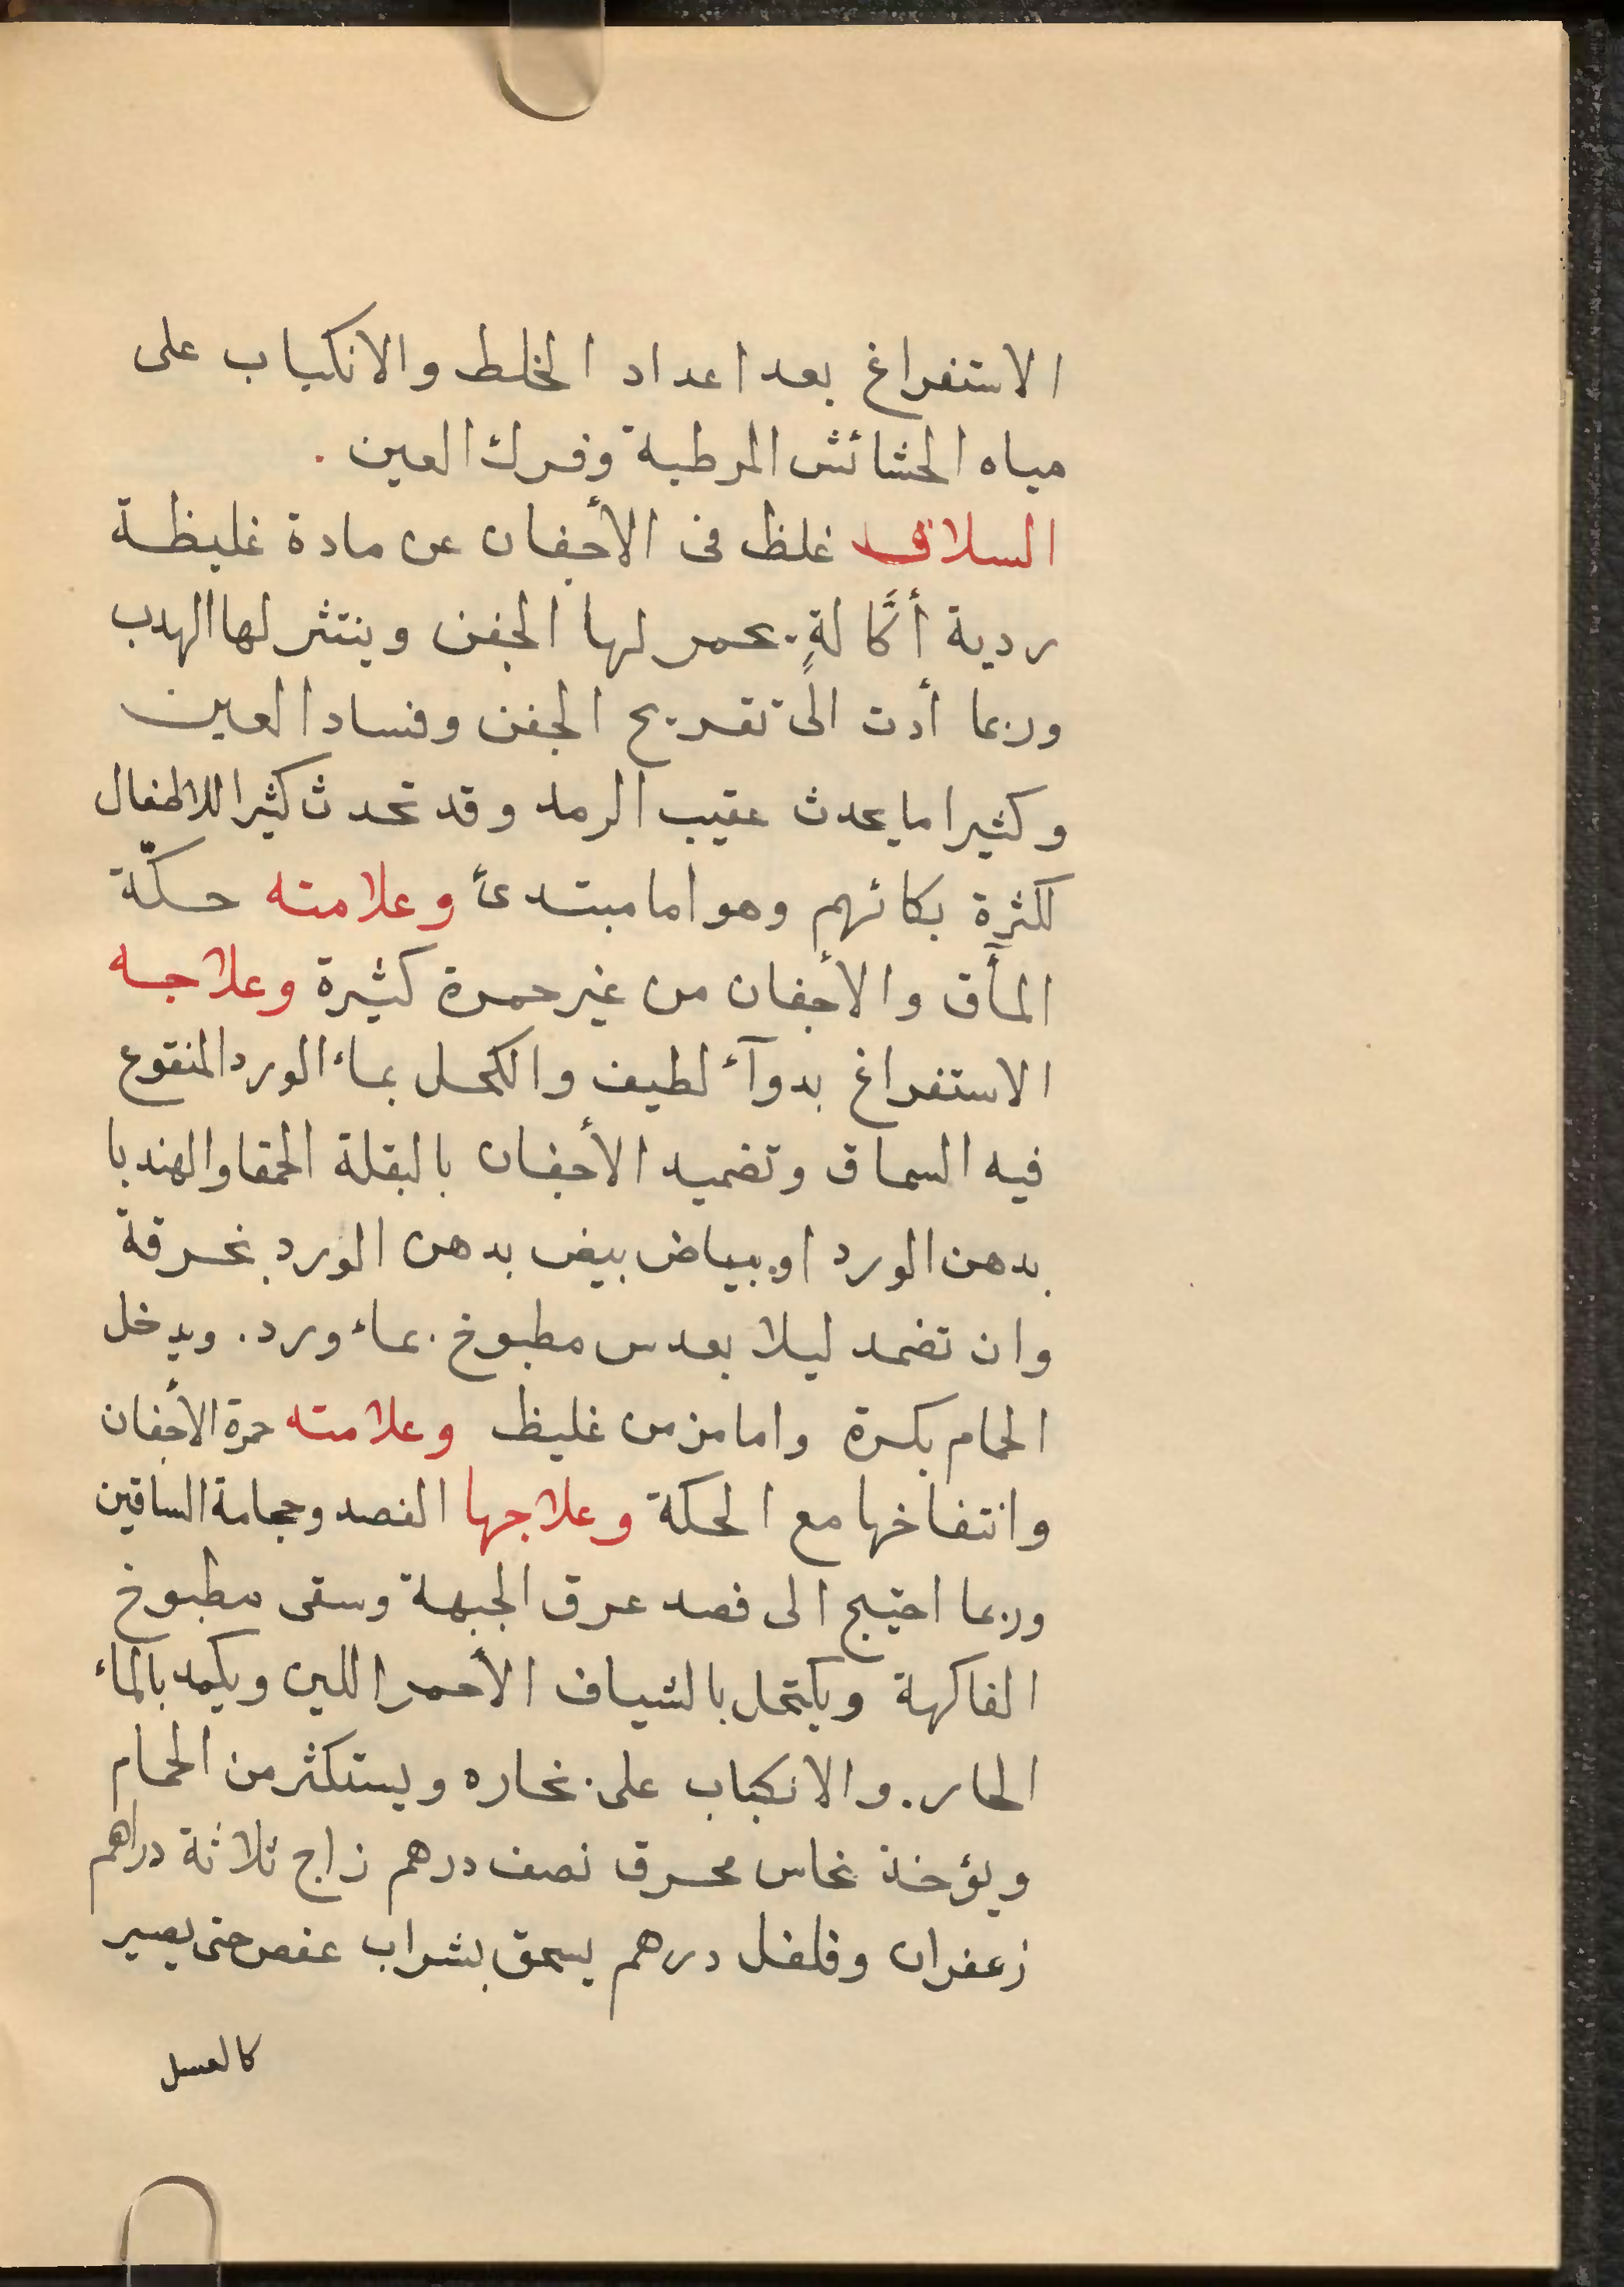 الاستفراغ بعد اعداد الخلط والانكباب على
مياه الحشائش المرطبة وفرك العين .
السلاق غلظ فى الأجفان عن مادة غليظة
ردية أكَّالةٍ يحمر لها الجفن وينتثر لها الهدب
وربما أدت الى تقريح الجفن وفساد العين
وكثيرا ما يحدث عقيب الرمد وقد تحدث كثيرا للاطفال
لكثرة بكائهم وهو اما مبتدئً وعلامته حكّة
المآق والأجفان من غير حمرة كثيرة وعلاجه
الاستفراغ بدوآء لطيف والكحل بماء الورد المنقوع
فيه السماق وتضميد الأجفان بالبقلة الحمقا والهندبا
بدهن الورد او ببياض بيض بدهن الورد بخرقة
وان تضمد ليلا بعدس مطبوخ بماء ورد . ويدخل
الحمام بكرة واما مزمن غليظ وعلامته حمرة الأجفان
وانتفاخها مع الحكة وعلاجها الفصد وحجامة الساقين
وربما احتيج الى فصد عرق الجبهة وسقى مطبوخ
الفاكهة ويكتحل بالشياف الأحمر اللين ويكمد بالماء
الحار . والانكباب على بخاره ويستكثر من الحمام
ويؤخذ نحاس محرق نصف درهم زاج ثلاثة دراهم
زعفران وفلفل درهم يسحق بشراب عفص حتى يصير
كالعسل